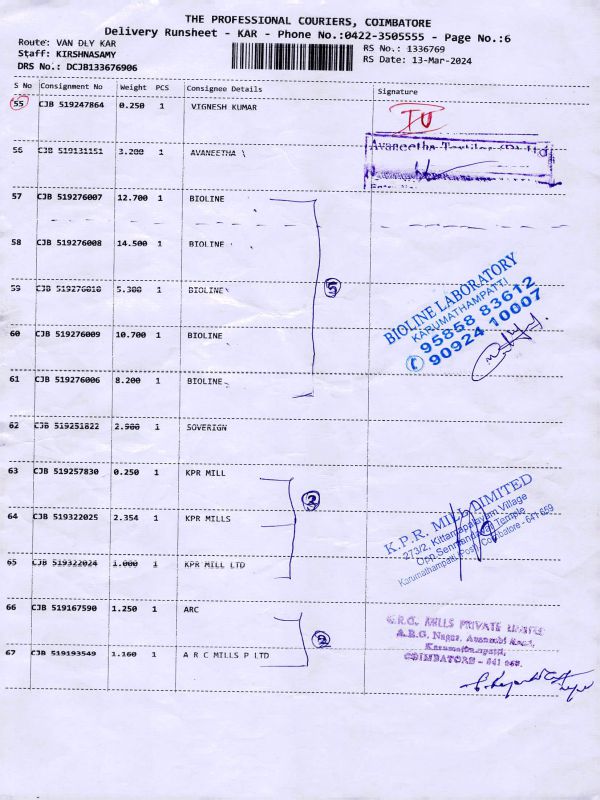 THE PROFESSIONAL COURIERS, COIMBATORE
Delivery Runsheet - KAR - Phone No.:0422-3505555 - Page No.:6
Route: VAN DLY KAR
RS No.: 1336769
Staff: KIRSHNASAMY
RS Date: 13-Mar-2024
DRS No.: DCJB133676906
S No Consignment No Weight PCS Consignee Details Signature
55 CJB 519247864 0.250 1 VIGNESH KUMAR
IU
56 CJB 519131151 3.200 1 AVANEETHA \
Avaneetha Textiles (P) Ltd
57 CJB 519276007 12.700 1 BIOLINE
58 CJB 519276008 14.500 1 BIOLINE
59 CJB 519276010 5.300 1 BIOLINE
5
BIOLINE LABORATORY
KARUMATHAMPATTI
95858 83612
90924 10007
60 CJB 519276009 10.700 1 BIOLINE
61 CJB 519276006 8.200 1 BIOLINE
62 CJB 519251822 2.900 1 SOVERIGN
63 CJB 519257830 0.250 1 KPR MILL
3
64 CJB 519322025 2.354 1 KPR MILLS
K.P.R. MILL LIMITED
273/2, Kittampalayam Village
Opp. Temple
Karumathampatti Post, Coimbatore - 641 659
65 CJB 519322024 1.000 1 KPR MILL LTD
66 CJB 519167590 1.250 1 ARC
2
MILLS PRIVATE LIMITED
A.R.G. Nagar, Road,
Karumathampatti,
COIMBATORE - 641 659.
67 CJB 519193549 1.160 1 A R C MILLS P LTD